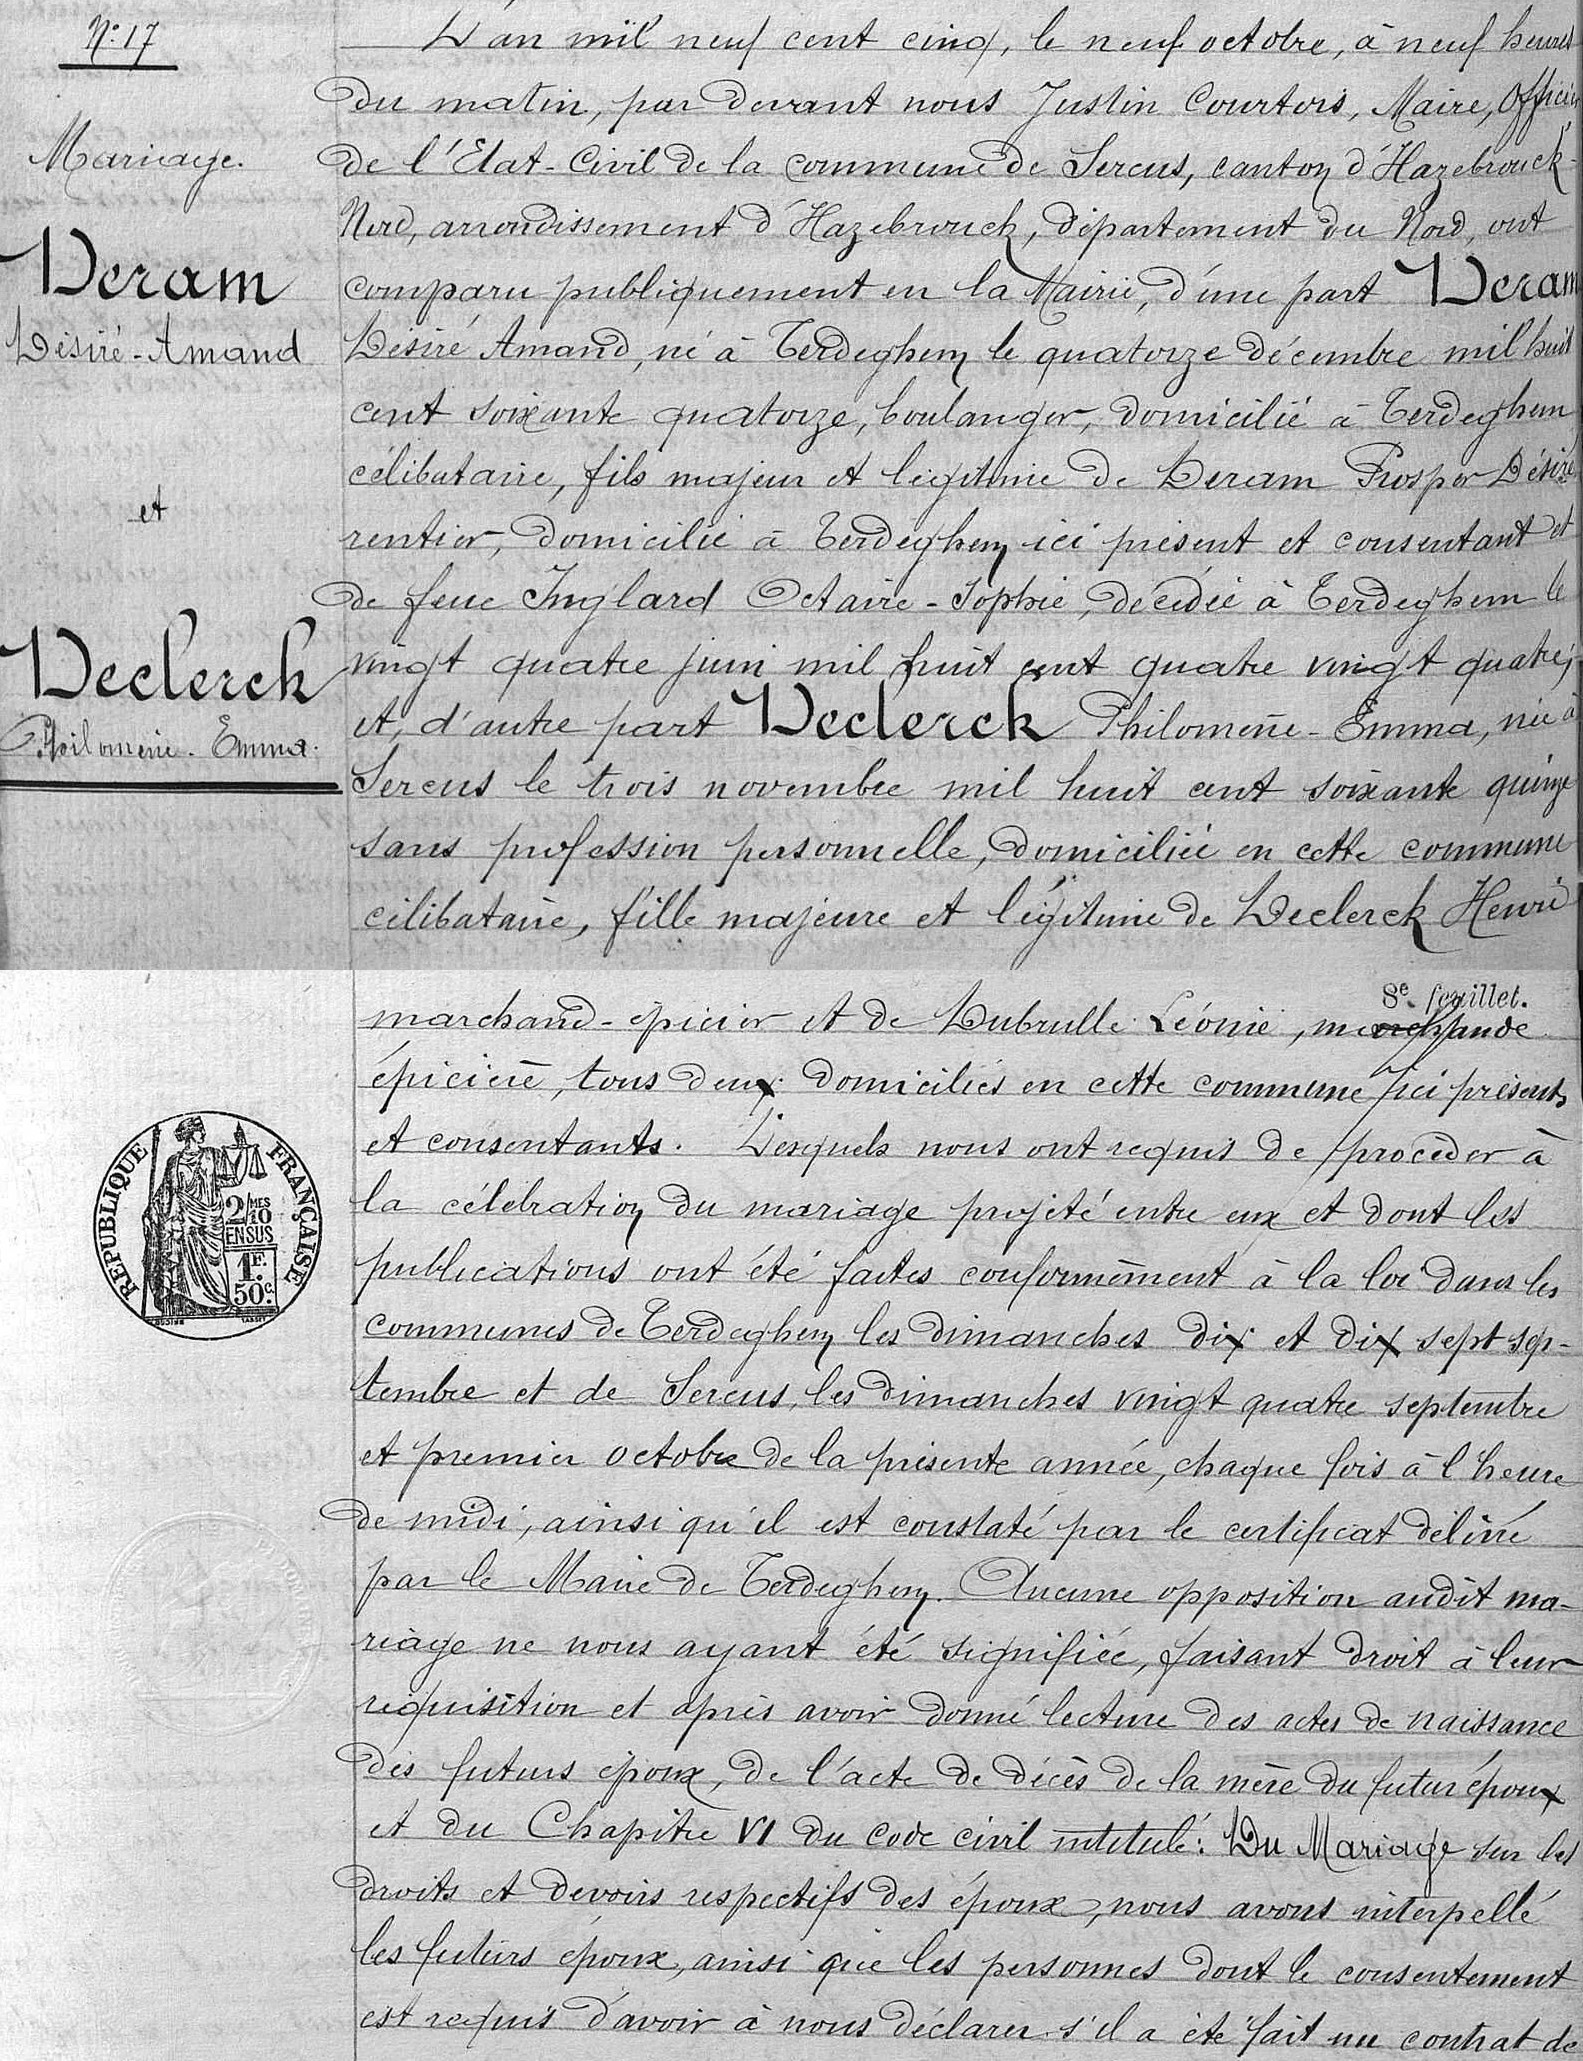 N° 17
Mariage.
Deram
Désiré-Amand
et
Declerck
Philomène-Emma.
L'an mil neuf cent cinq, le neuf octobre, à neuf heures
du matin, par devant nous Justin Courtois, Maire, Officier
de l'Etat-Civil de la commune de Sercus, canton d'Hazebrouck-
Nord, arrondissement d'Hazebrouck, département du Nord, ont
comparu publiquement en la Mairie, d'une part Deram
Désiré Amand, né à Terdeghem le quatorze décembre mil huit
cent soixante quatorze, boulanger, domicilié à Terdeghem
célibataire, fils majeur et légitime de Deram Prosper Désiré
rentier, domicilié à Terdeghem ici présent et consentant et
de feue Inglard Octavie-Sophie, décédée à Terdeghem le
vingt quatre juin mil huit cent quatre vingt quatre;
et, d'autre part Declerck Philomène-Emma, née à
Sercus le trois novembre mil huit cent soixante quinze
sans profession personnelle, domiciliée en cette commune
célibataire, fille majeure et légitime de Declerck Henri
8e feuillet.
marchand-épicier et de Dubrulle Léonie, marchande
épicière, tous deux domiciliés en cette commune ici présents
et consentants. Lesquels nous ont requis de procéder à
la célébration du mariage projeté entre eux et dont les
publications ont été faites conformément à la loi dans les
communes de Terdeghem les dimanches dix et dix sept sep-
tembre et de Sercus, les dimanches vingt quatre septembre
et premier octobre de la présente année, chaque fois à l'heure
de midi, ainsi qu'il est constaté par le certificat délivré
par le Maire de Terdeghem. Aucune opposition audit ma-
riage ne nous ayant été signifiée, faisant droit à leur
réquisition et après avoir donné lecture des actes de naissance
des futurs époux, de l'acte de décès de la mère du futur époux
et du Chapitre VI du code civil intitulé: Du Mariage sur les
droits et devoirs respectifs des époux, nous avons interpellé
les futurs époux, ainsi que les personnes dont le consentement
est requis d'avoir à nous déclarer s'il a été fait un contrat de
RÉPUBLIQUE FRANÇAISE
2/10 MES
EN SUS
1F.
50c.